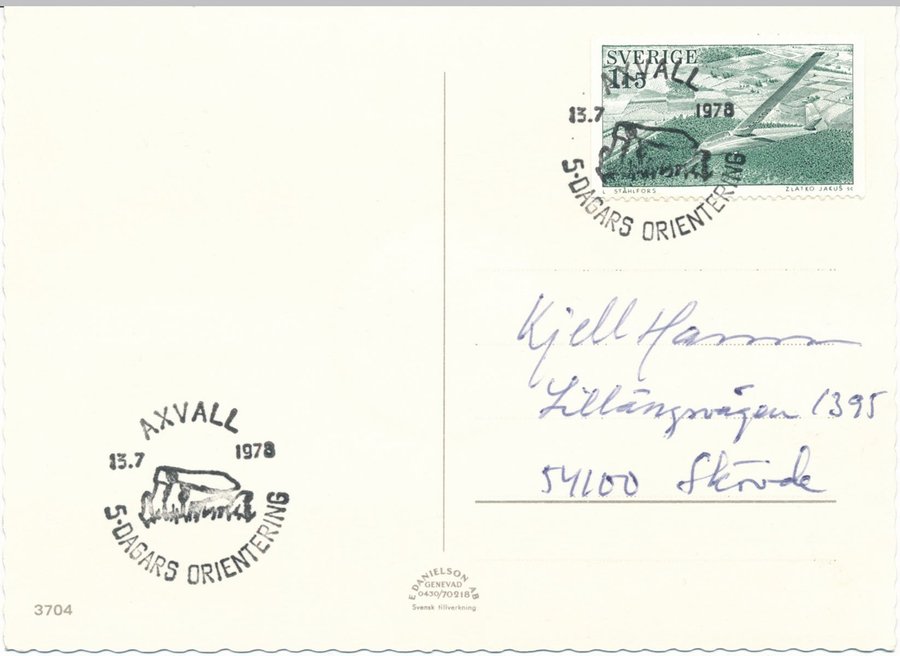 SVERIGE
115
L STÅHLFORS ZLATKO JAKUŠ SC
AXVALL
13.7 1978
5-DAGARS ORIENTERING
Kjell
Lillängsvägen 1395
54100 Skövde
AXVALL
13.7 1978
5-DAGARS ORIENTERING
E. DANIELSON AB
GENEVAD
0430/70218
Svensk tillverkning
3704